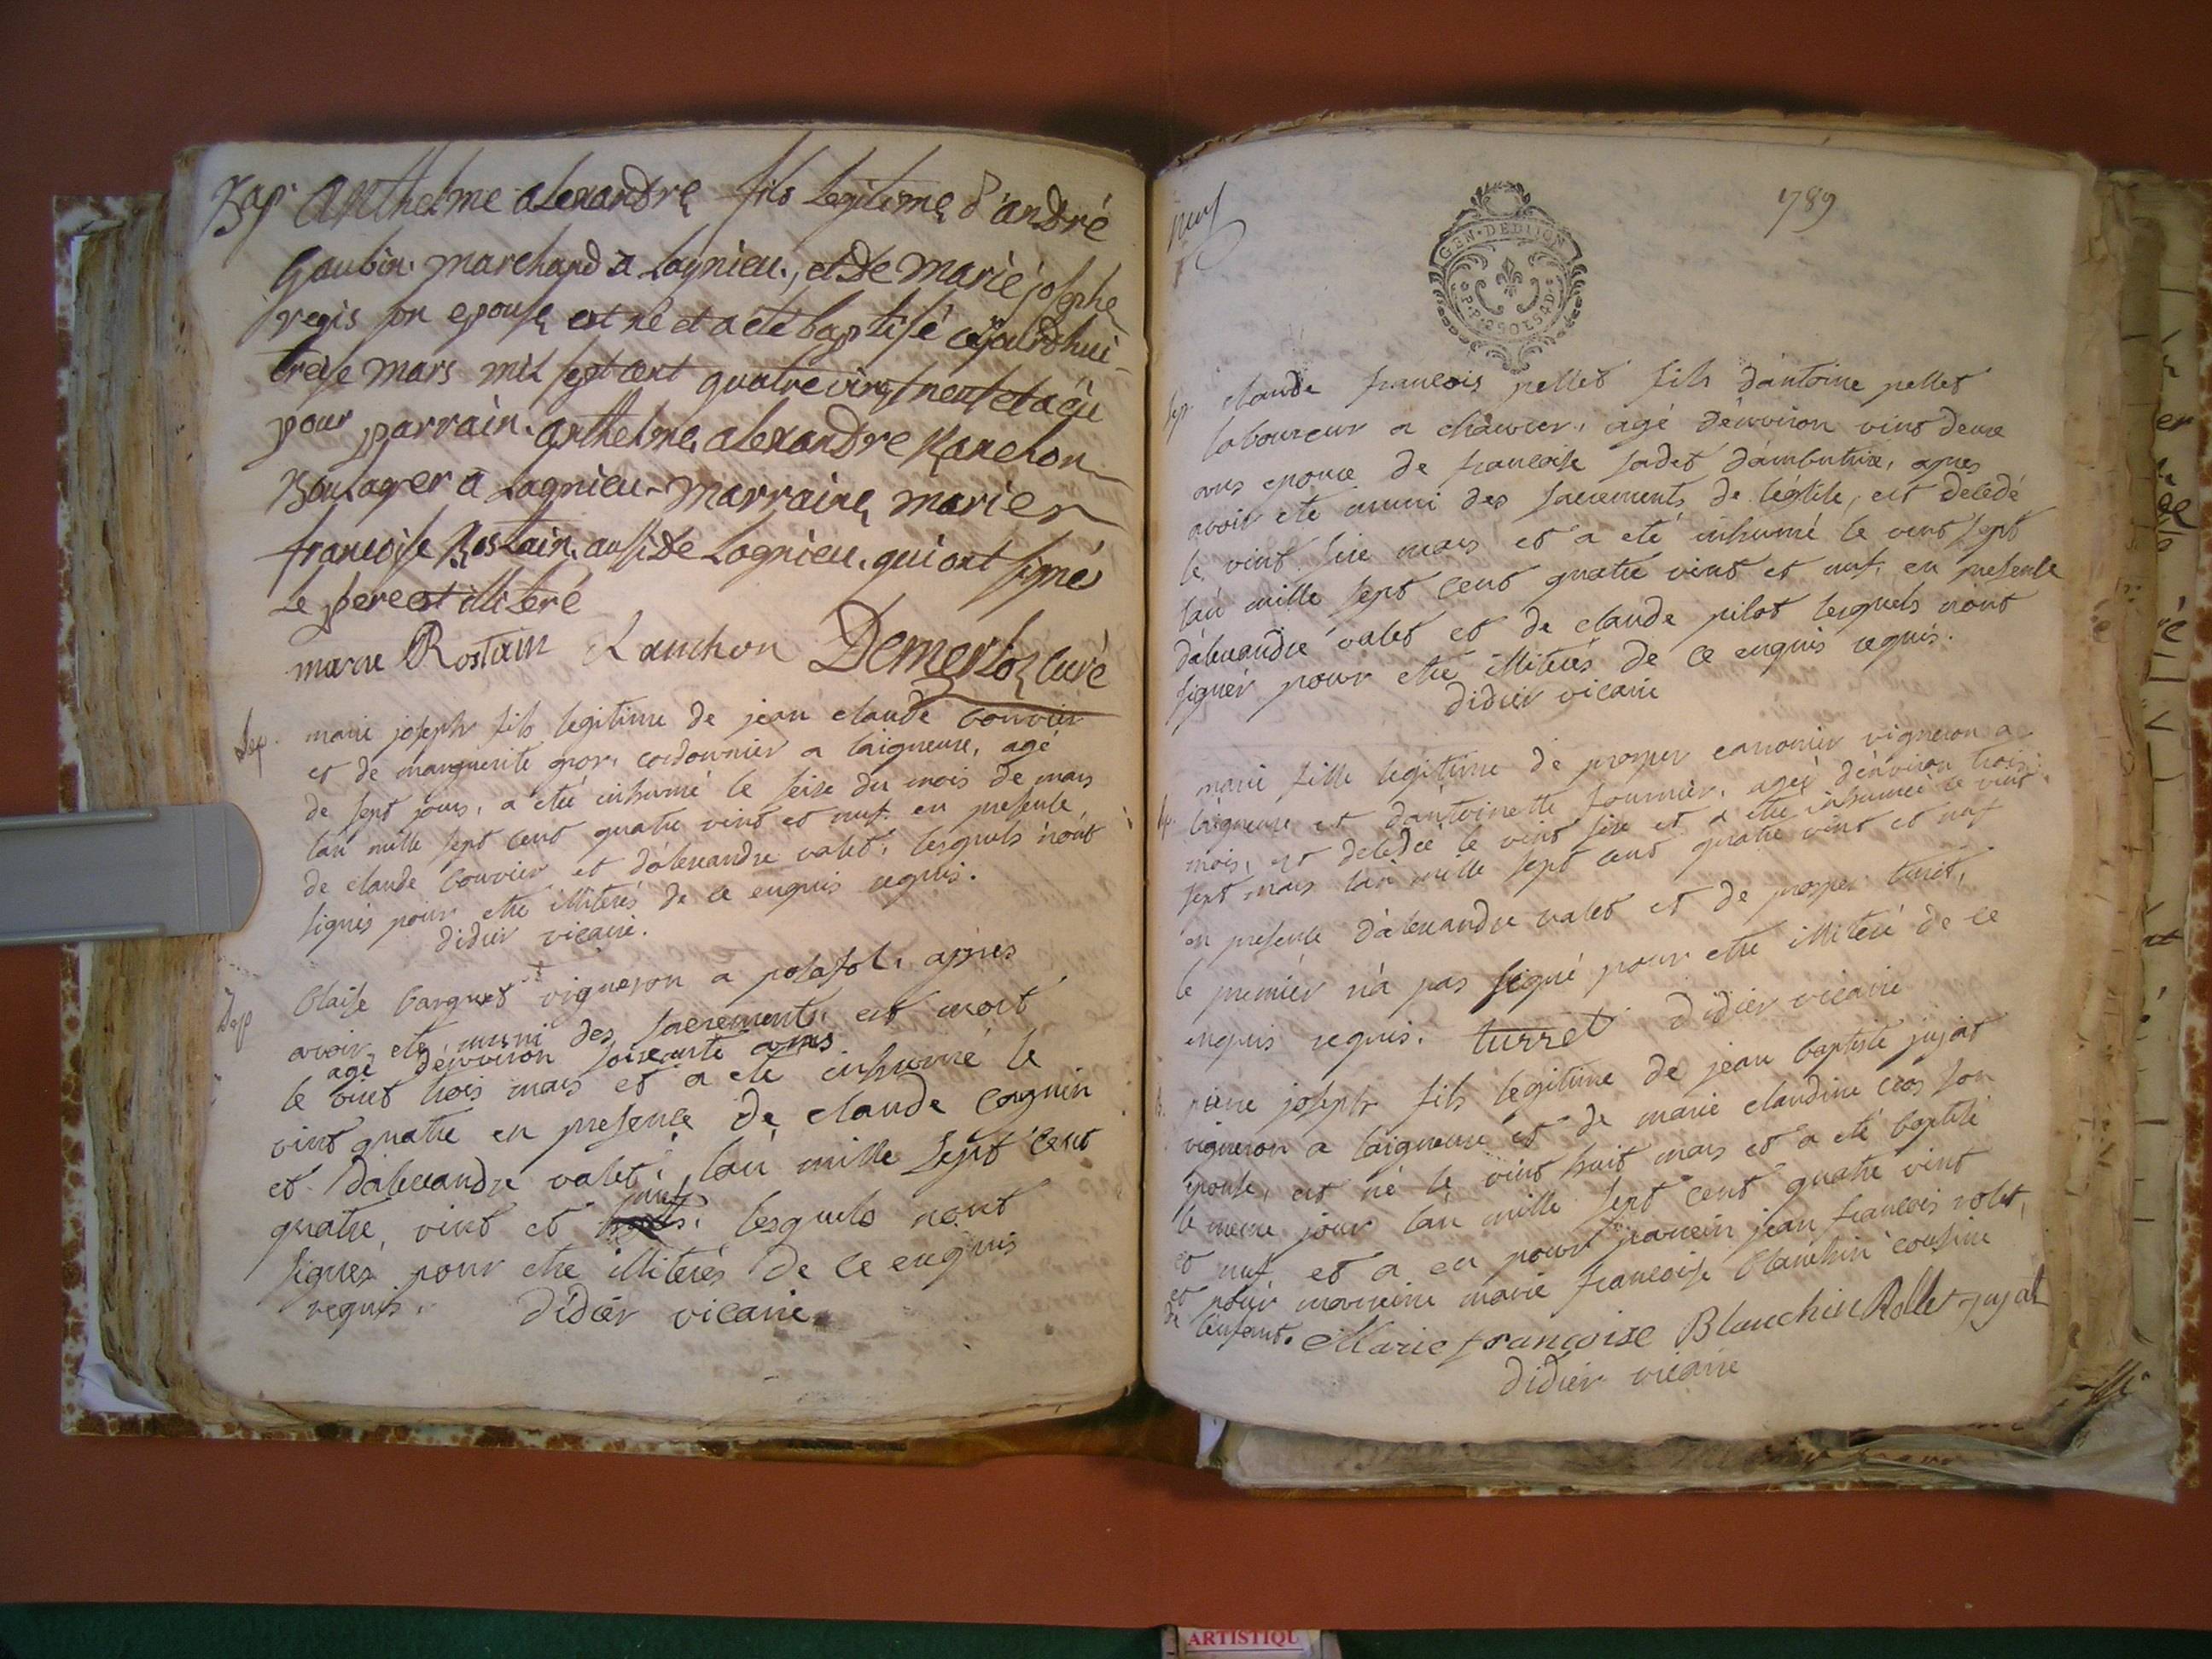 Bap. Anthelme alexandre fils legitime d'andré
Gaubin marchand a Lagnieu, et de marie josephe
regis son epouse est né et a été baptisé cejourd'hui
treise mars mil sept cent quatre vingt neuf et a eü
pour parrain anthelme alexandre Ranchon
Boulager a Lagnieu marraine marie
francoise Rostain aussi de Lagnieu qui ont signé
Le pere est illiteré
marie Rostain Ranchon Demerloz curé
Sep. marie joseph fils legitime de jean claude bouvier
et de marguerite gros, cordonnier a laigneure, agé
de sept jours, a eté inhumé le seise du mois de mars
lan mille sept cent quatre vint et nuf en presence
de claude bouvier et d'alexandre valet, lesquels n'ont
signés pour etre illiterés de ce enquis requis.
didier vicaire.
Sep blaise barquet vigneron a posafol, apres
avoir eté muni des sacrements, est mort
agé denviron soixante ans
le vint trois mars et a eté inhumé le
vint quatre en presence de claude cognin
et d'alexandre valet, lan mille sept cent
nuf
quatre vint et lesquels nont
signes pour etre illiterés de ce enquis
requis. didier vicaire
nuf
1789
GEN. DE DIJON
Sep. claude francois pellet fils d'antoine pellet
laboureur a agé d'environ vint deux
ans epoux de francoise sadet d'ambutrix, apres
avoir eté muni des sacrements de leglise, est decedé
le vint six mars et a eté inhumé le vint sept
lan mille sept cent quatre vint et nuf, en presence
d'alexandre valet et de claude pilot lesquels nont
signér pour etre illiterés de ce enquis requis.
didier vicaire
marie fille legitime de prosper vigneron a
laigneure et d'antoinette fournier, ageé d'environ trois
mois, est decedeé le vint six et a eté inhumeé le vint
sept mars lan mille sept cent quatre vint et nuf
en presence d'alexandre valet et de prosper turet,
le premiér n'a pas signé pour etre illiteré de ce
enquis requis. turret didier vicaire
B. pierre joseph fils legitime de jean baptiste jujat
vigneron a laigneure et de marie claudine cros son
epouse, est né le vint huit mars et a eté baptisé
le meme jour lan mille sept cent quatre vint
et nuf et a eu pour parrein jean francois rolet,
et pour marreine marie francoise blanchin cousine
de l'enfant. Marie francoise Blanchin Rollet jujat
didier vicaire
ARTISTIQU